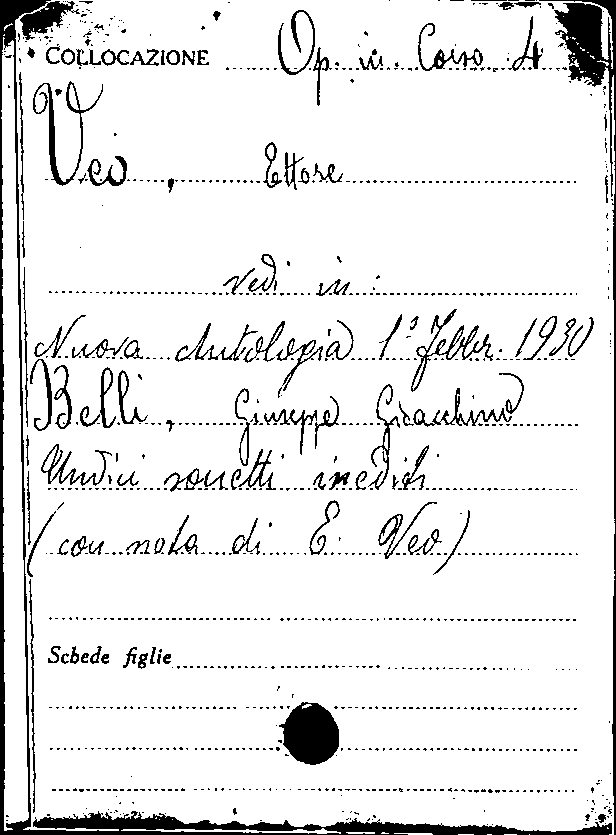 COLLOCAZIONE Op. in. Corso. 4
Veo, Ettore
vedi in:
Nuova Antologia 1° Febbr. 1930
Belli, Giuseppe Gioacchino
Undici sonetti inediti
(con nota di E. Veo)
Schede figlie